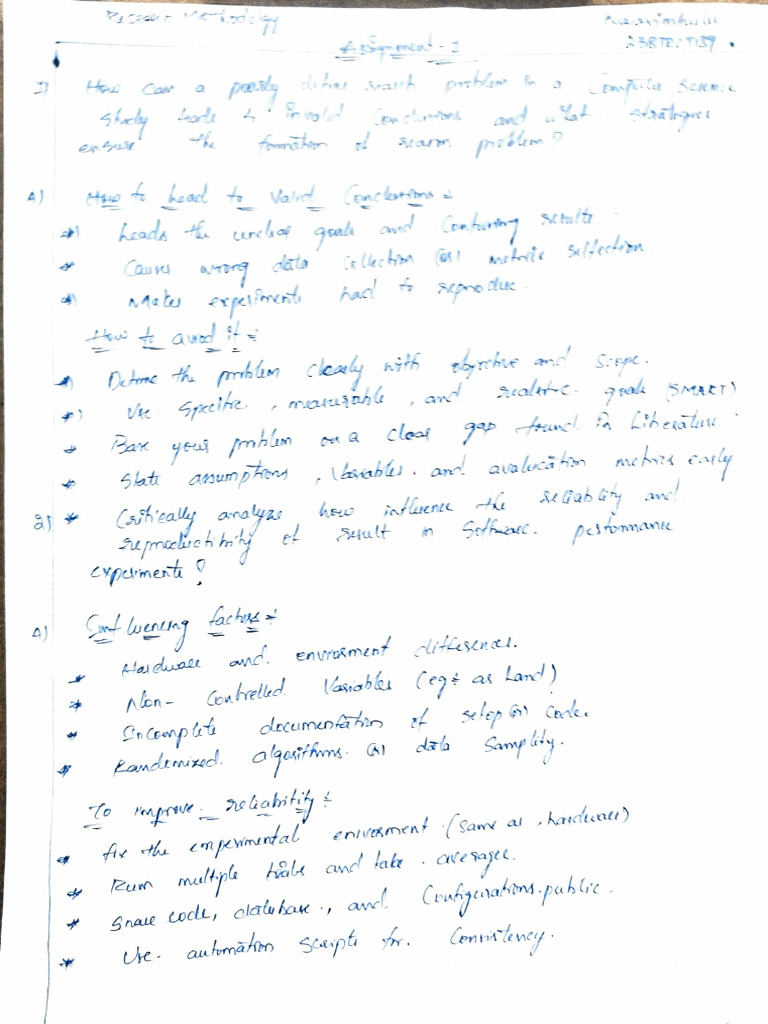 Research Methodology
Narasimhulu
Assignment - 1
1) How can a poorly define reserch problem in a Computer Science
Study leads to invalid Conclusions and what strategies
ensure the formation of problem?
A) How to lead to Valid Conclusions :-
*) Leads the unclear goals and Confusing results.
* Causes wrong data Collection (or) metric selfection.
*) Makes experiments had to reproduce.
How to avoid it :-
*) Define the problem clearly with objective and Scope.
*) Use Specific, measurable, and realistic goals (SMART)
* Base your problem on a clear gap found in Literature.
* State assumptions, Variables. and avaluication metrics early
2) * Critically analyze how influence the reliability and
of result in Software. performance
experiments?
A) Influencing factors :-
* Hardware and enviroment differences.
* Non- Controlled Variables (eg:
* Incomplete documentation of setop (or) code.
* Randomized. algorithms. (or) data Samplity.
To improve. reliability :-
* fix the experimental enviroment (same hardware)
* Rum multiple trails and take. averages.
* Share code, database., and Configurations.public.
* Use. automation Scripts for. Consistency.